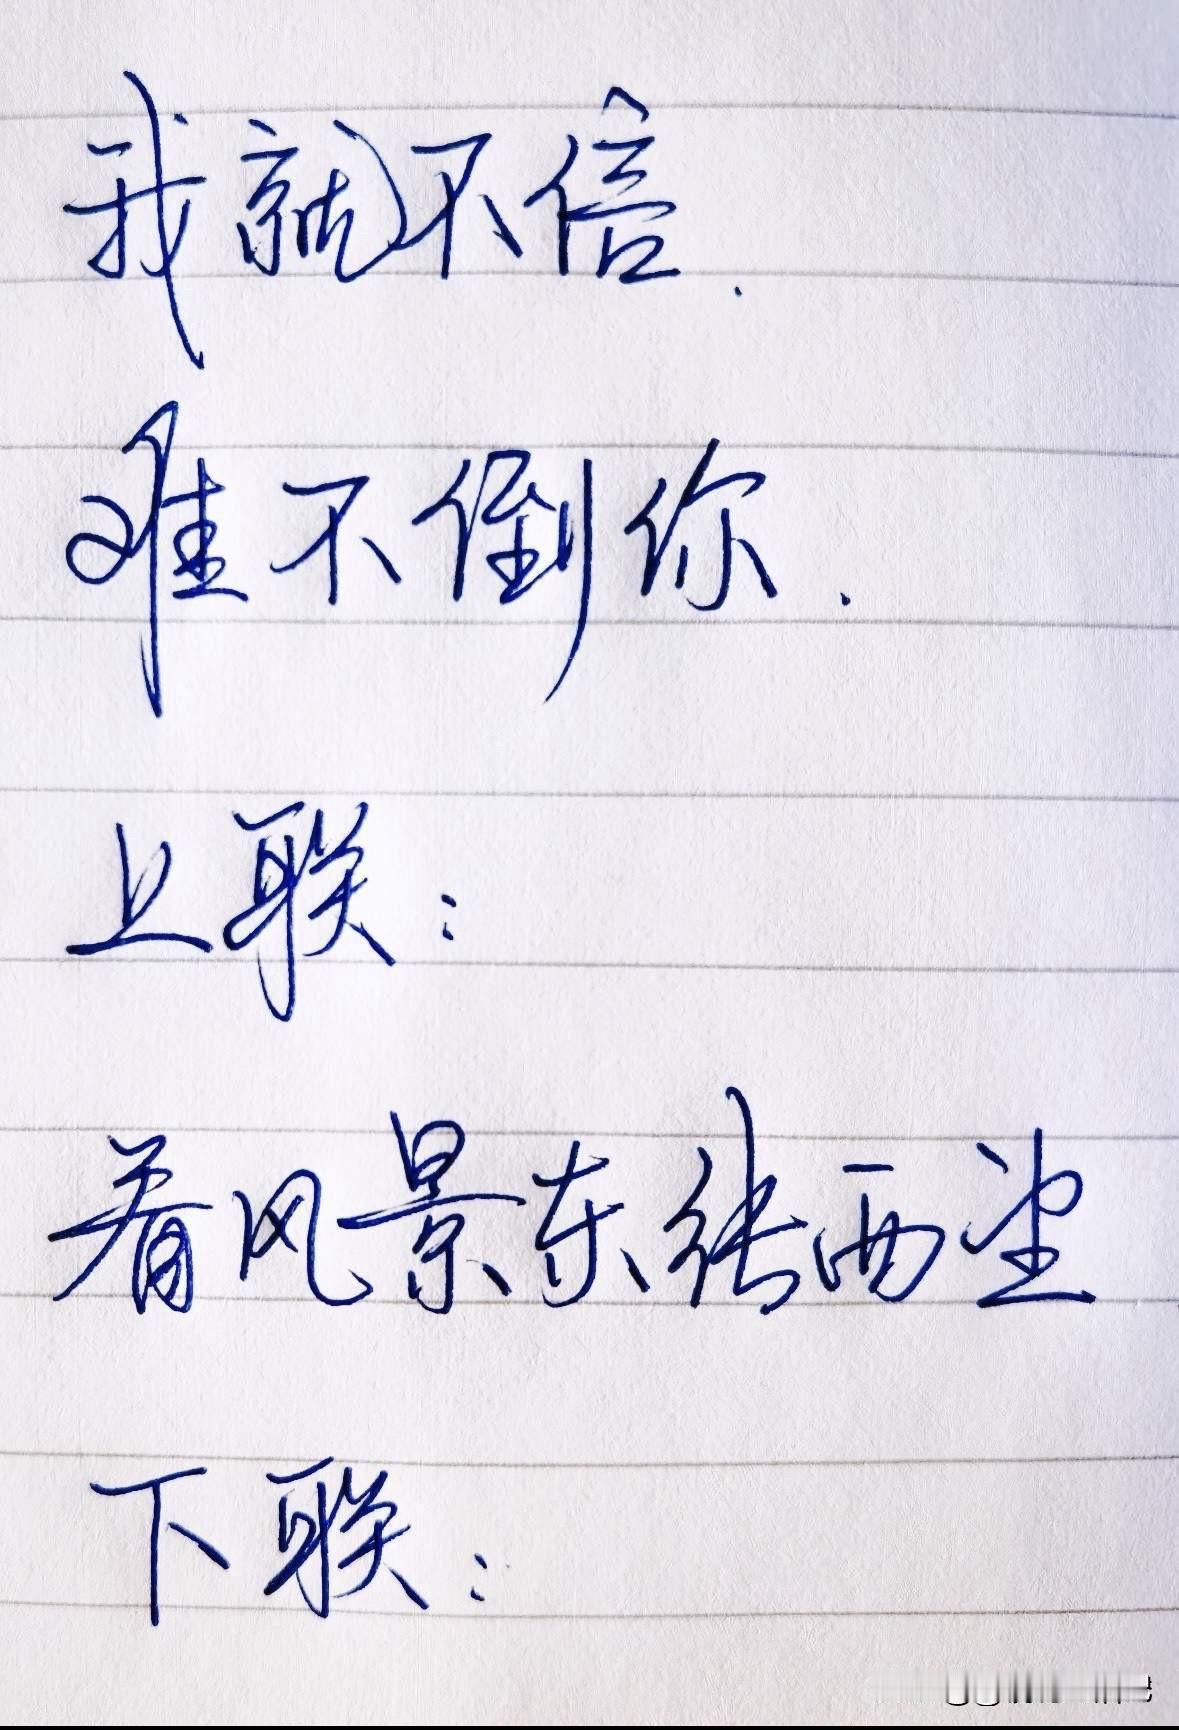 我就不信.
难不倒你.
上联:
看风景东张西望
下联: